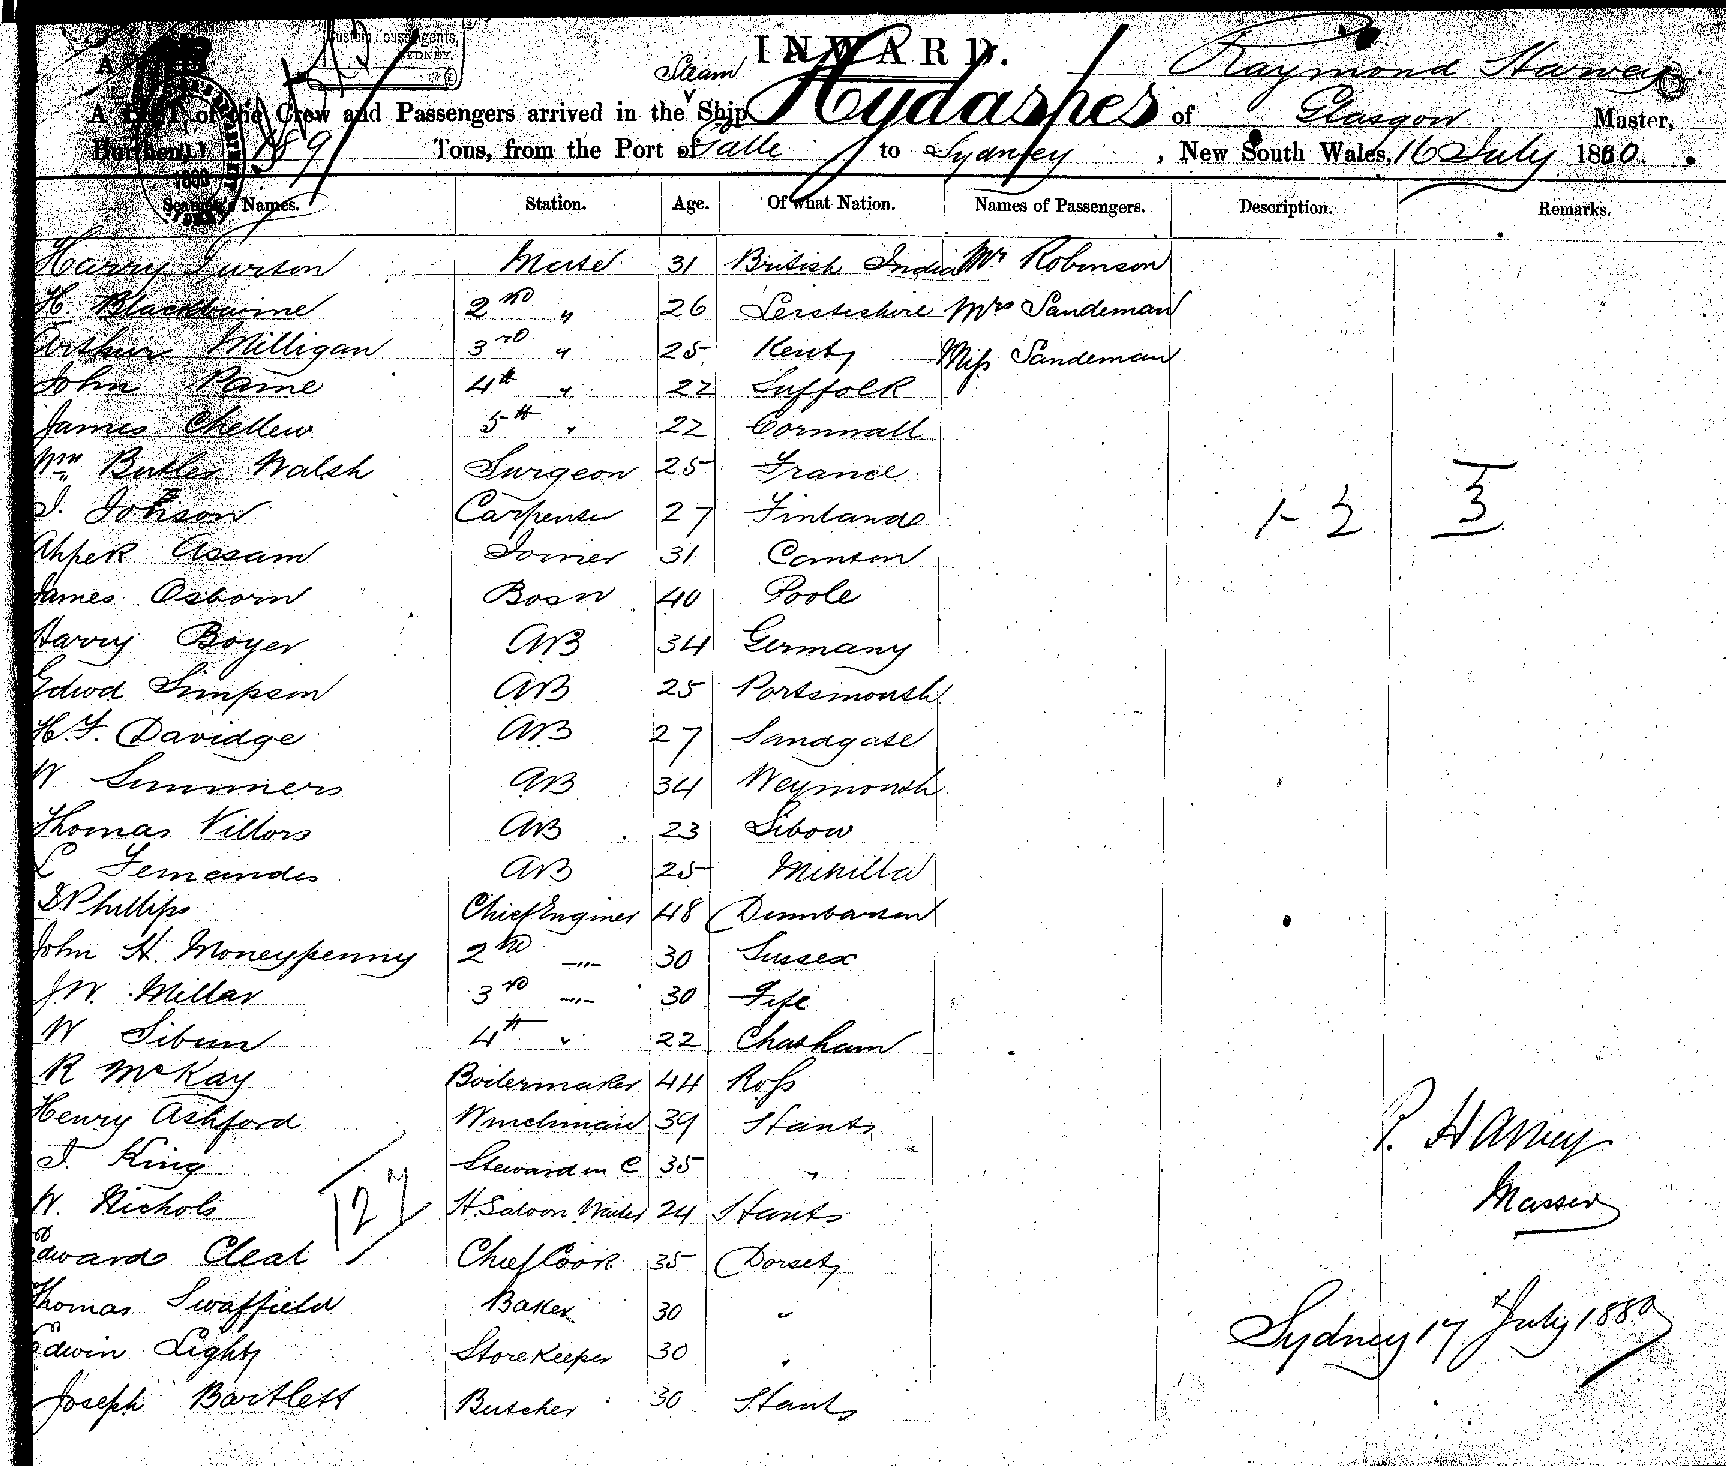 INWARD.
Steam Raymond Harvey
A LIST of the Crew and Passengers arrived in the Ship Hydashes of Glasgow Master,
Burthen 1889 Tons, from the Port of Galle to Sydney, New South Wales, 16 July 1880.
Seamen's Names. Station. Age. Of what Nation. Names of Passengers. Description. Remarks.
Harry Turton Mate 31 British India Mr Robinson
H Blackburne 2nd " 26 Mrs Sandeman
Arthur Milligan 3rd " 25 Kent Miss Sandeman
John Paine 4th " 22 Suffolk
James Chellew 5th " 22 Cornwall
Wm Butler Walsh Surgeon 25 France
J. Johson Carpenter 27 Finland 1- 2 3
Ahpek Assam Joiner 31 Canton
James Osborn Bosn 40 Poole
Harry Boyer AB 34 Germany
Edwd Simpson AB 25 Portsmouth
H.F. Davidge AB 27 Sandgate
W Summers AB 34 Weymouth
Thomas Villors AB 23
Fernandes AB 25 Minilla
Phillips Chief Enginer 48 Dumbarton
John H Moneypenny 2nd -"- 30 Sussex
JW Millar 3rd -"- 30 Fife
W Sibun 4th " 22 Chatham
R McKay Boilermaker 44 Ross
Henry Ashford Winchman 39 Hants
J. King Steward in C 35 "
W. Nichols H. Saloon Waiter 24 Hants
127
P. Harvey
Master
Edward Cleal Chief Cook 35 Dorset
Thomas Swaffield Baker 30 "
Edwin Light Storekeeper 30 "
Sydney 17 July 1880
Joseph Bartlett Butcher 30 Hants